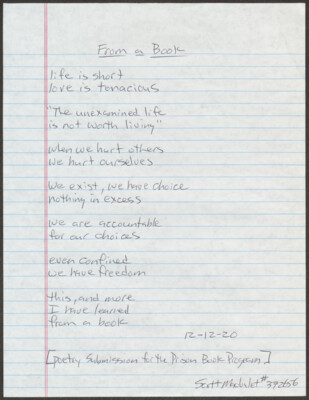 From a Book
life is short
love is tenacious
"The unexamined life
is not worth living"
when we hurt others
we hurt ourselves
We exist, we have choice
nothing in excess
we are accountable
for our choices
even confined
we have freedom
this, and more
I have learned
from a book
12-12-20
[poetry Submission for the Prison Book Program]
Scott